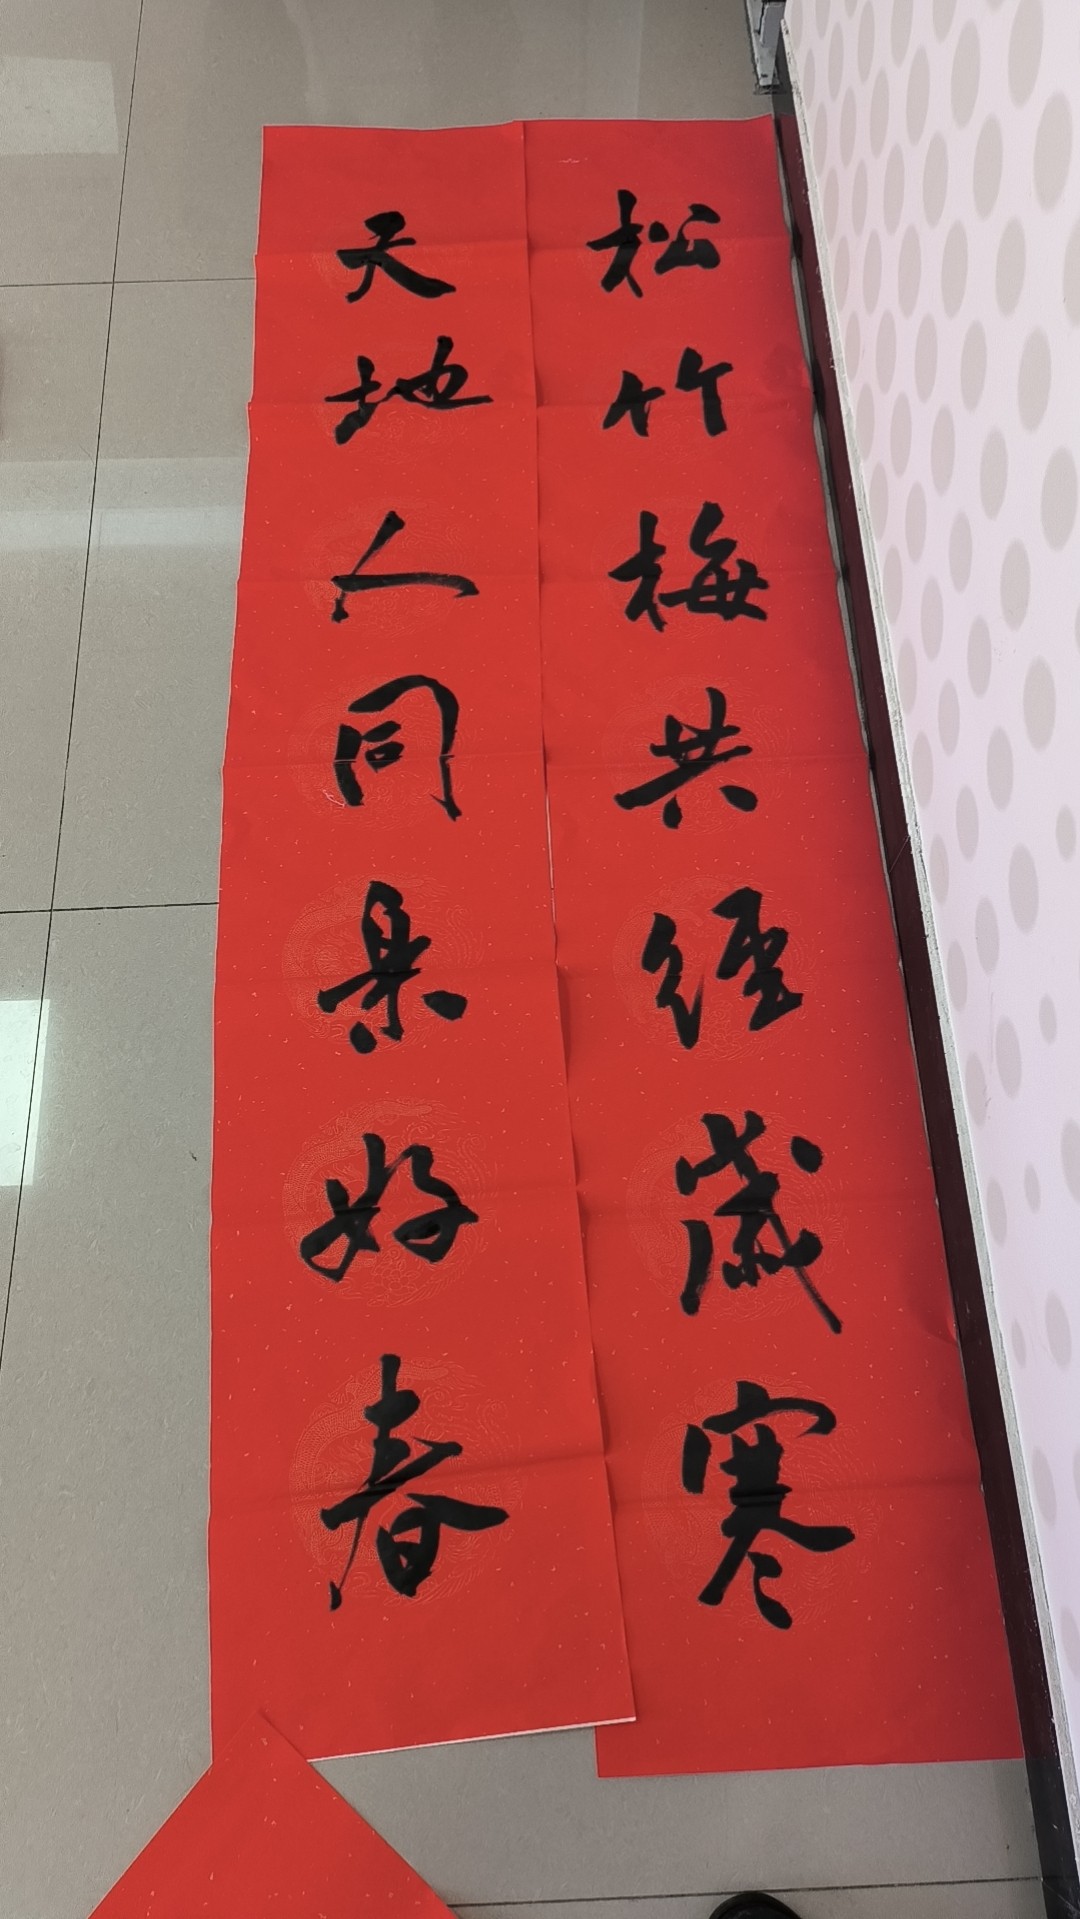 松竹梅共經歲寒
天地人同是好春